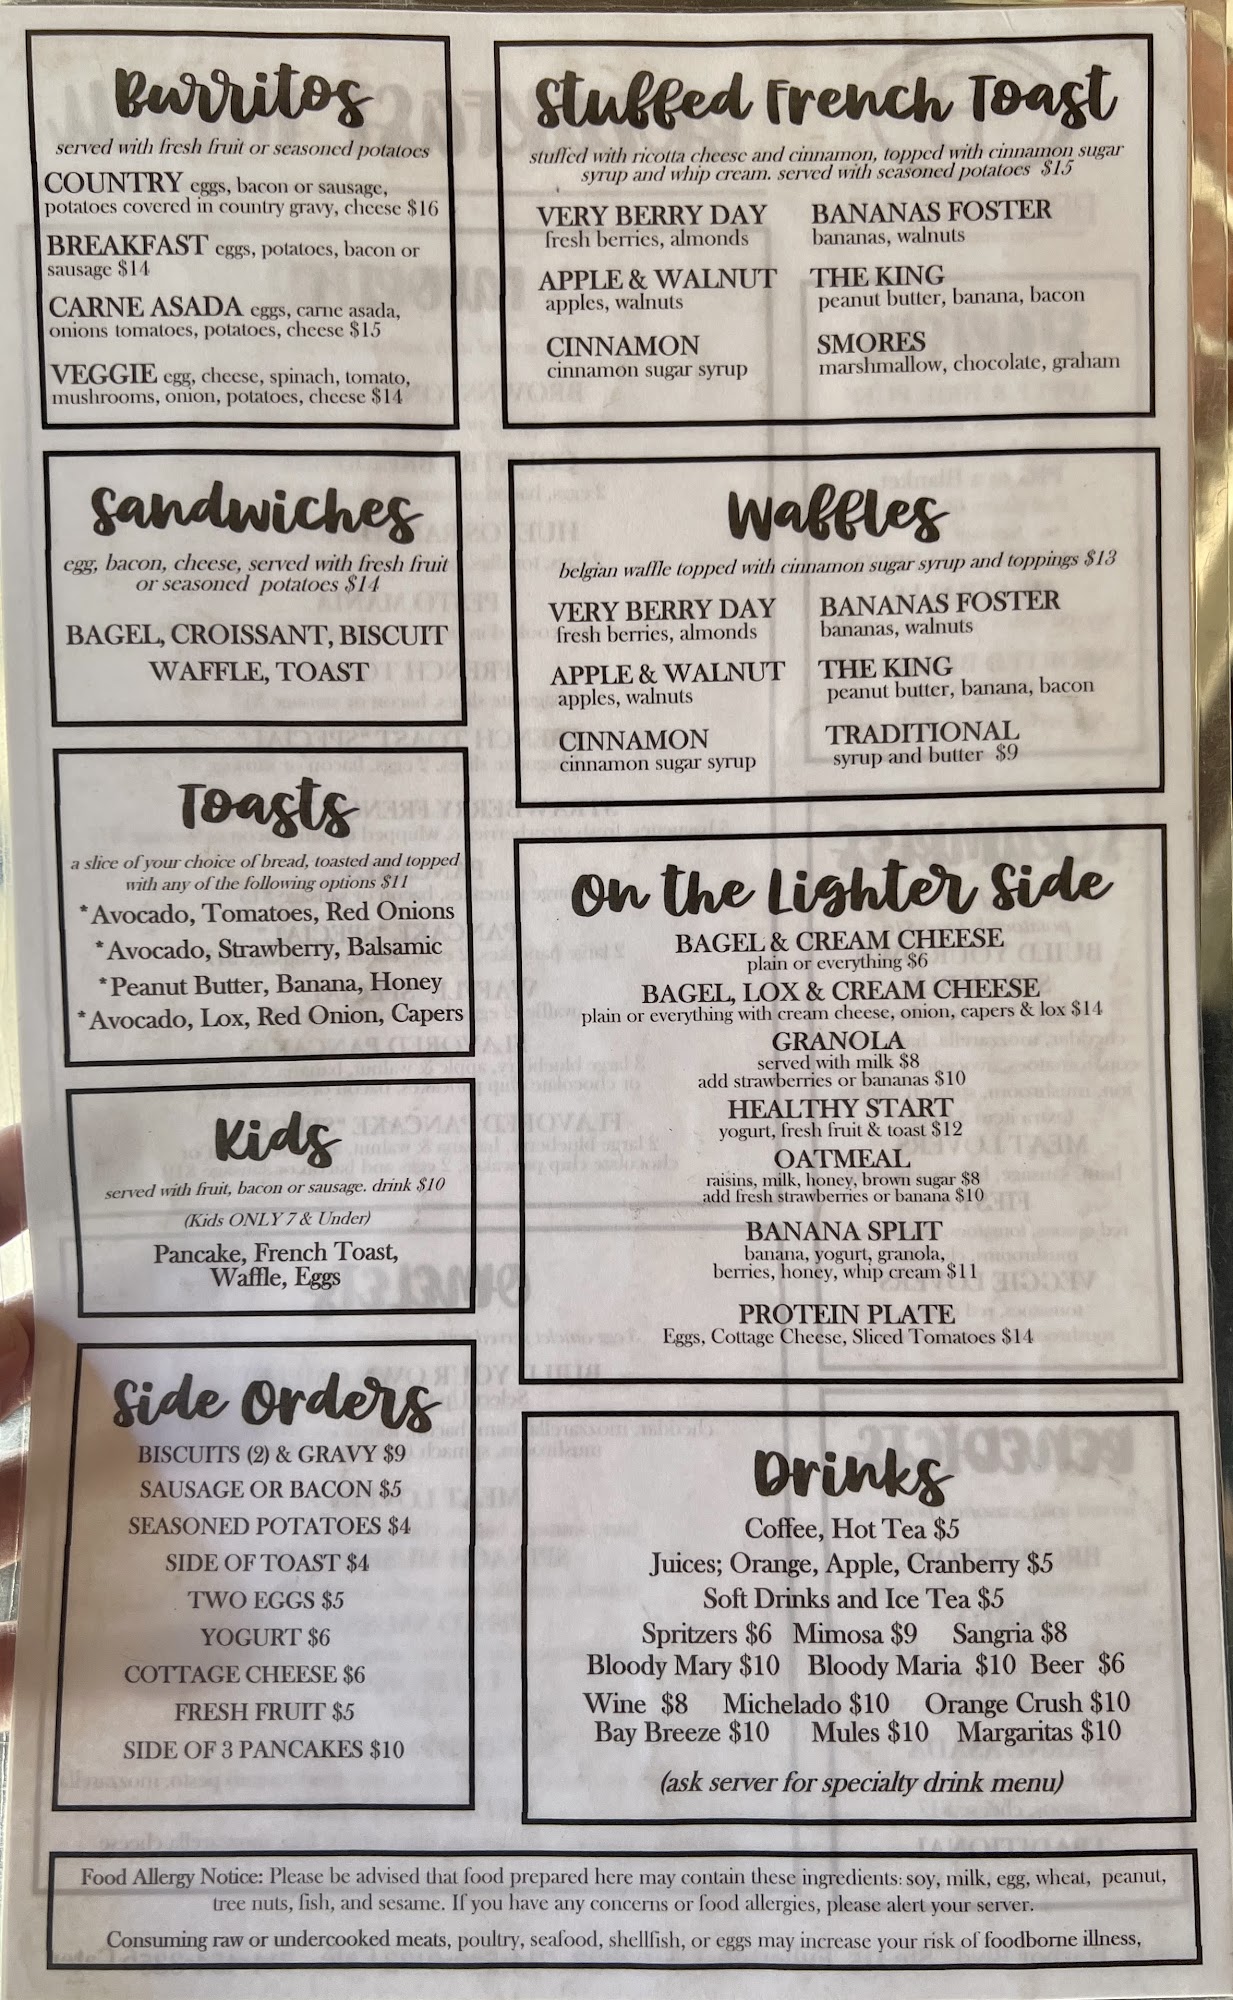 Burritos
served with fresh fruit or seasoned potatoes
COUNTRY eggs, bacon or sausage,
potatoes covered in country gravy, cheese $16
BREAKFAST eggs, potatoes, bacon or
sausage $14
CARNE ASADA eggs, carne asada,
onions tomatoes, potatoes, cheese $15
VEGGIE egg, cheese, spinach, tomato,
mushrooms, onion, potatoes, cheese $14
Stuffed French Toast
stuffed with ricotta cheese and cinnamon, topped with cinnamon sugar
syrup and whip cream. served with seasoned potatoes $15
VERY BERRY DAY
fresh berries, almonds
BANANAS FOSTER
bananas, walnuts
APPLE & WALNUT
apples, walnuts
THE KING
peanut butter, banana, bacon
CINNAMON
cinnamon sugar syrup
SMORES
marshmallow, chocolate, graham
Sandwiches
egg, bacon, cheese, served with fresh fruit
or seasoned potatoes $14
BAGEL, CROISSANT, BISCUIT
WAFFLE, TOAST
Waffles
belgian waffle topped with cinnamon sugar syrup and toppings $13
VERY BERRY DAY
fresh berries, almonds
BANANAS FOSTER
bananas, walnuts
APPLE & WALNUT
apples, walnuts
THE KING
peanut butter, banana, bacon
CINNAMON
cinnamon sugar syrup
TRADITIONAL
syrup and butter $9
Toasts
a slice of your choice of bread, toasted and topped
with any of the following options $11
*Avocado, Tomatoes, Red Onions
*Avocado, Strawberry, Balsamic
*Peanut Butter, Banana, Honey
*Avocado, Lox, Red Onion, Capers
On the Lighter Side
BAGEL & CREAM CHEESE
plain or everything $6
BAGEL, LOX & CREAM CHEESE
plain or everything with cream cheese, onion, capers & lox $14
GRANOLA
served with milk $8
add strawberries or bananas $10
HEALTHY START
yogurt, fresh fruit & toast $12
OATMEAL
raisins, milk, honey, brown sugar $8
add fresh strawberries or banana $10
BANANA SPLIT
banana, yogurt, granola,
berries, honey, whip cream $11
PROTEIN PLATE
Eggs, Cottage Cheese, Sliced Tomatoes $14
Kids
served with fruit, bacon or sausage. drink $10
(Kids ONLY 7 & Under)
Pancake, French Toast,
Waffle, Eggs
Side Orders
BISCUITS (2) & GRAVY $9
SAUSAGE OR BACON $5
SEASONED POTATOES $4
SIDE OF TOAST $4
TWO EGGS $5
YOGURT $6
COTTAGE CHEESE $6
FRESH FRUIT $5
SIDE OF 3 PANCAKES $10
Drinks
Coffee, Hot Tea $5
Juices; Orange, Apple, Cranberry $5
Soft Drinks and Ice Tea $5
Spritzers $6 Mimosa $9 Sangria $8
Bloody Mary $10 Bloody Maria $10 Beer $6
Wine $8 Michelado $10 Orange Crush $10
Bay Breeze $10 Mules $10 Margaritas $10
(ask server for specialty drink menu)
Food Allergy Notice: Please be advised that food prepared here may contain these ingredients: soy, milk, egg, wheat, peanut,
tree nuts, fish, and sesame. If you have any concerns or food allergies, please alert your server.
Consuming raw or undercooked meats, poultry, seafood, shellfish, or eggs may increase your risk of foodborne illness,